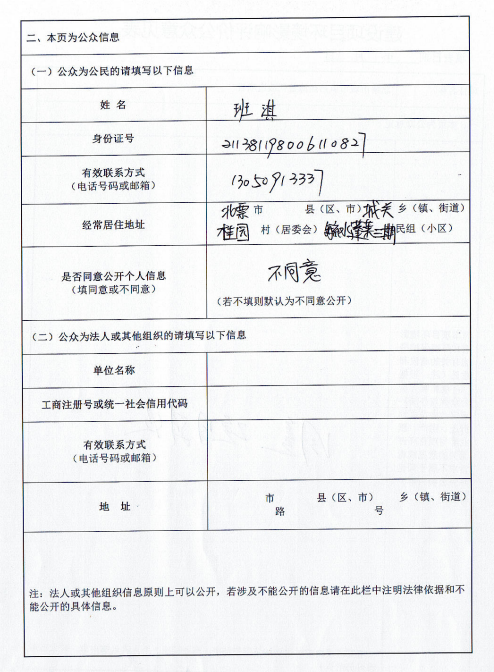 二、本页为公众信息
（一）公众为公民的请填写以下信息
姓 名 班淇
身份证号 211381198006110827
有效联系方式
（电话号码或邮箱） 13050913337
经常居住地址 北票 市 县（区、市） 城关 乡（镇、街道）
桂园 村（居委会） 民组（小区）
是否同意公开个人信息
（填同意或不同意） 不同意
（若不填则默认为不同意公开）
（二）公众为法人或其他组织的请填写以下信息
单位名称
工商注册号或统一社会信用代码
有效联系方式
（电话号码或邮箱）
地 址 市 县（区、市） 乡（镇、街道）
路 号
注：法人或其他组织信息原则上可以公开，若涉及不能公开的信息请在此栏中注明法律依据和不
能公开的具体信息。